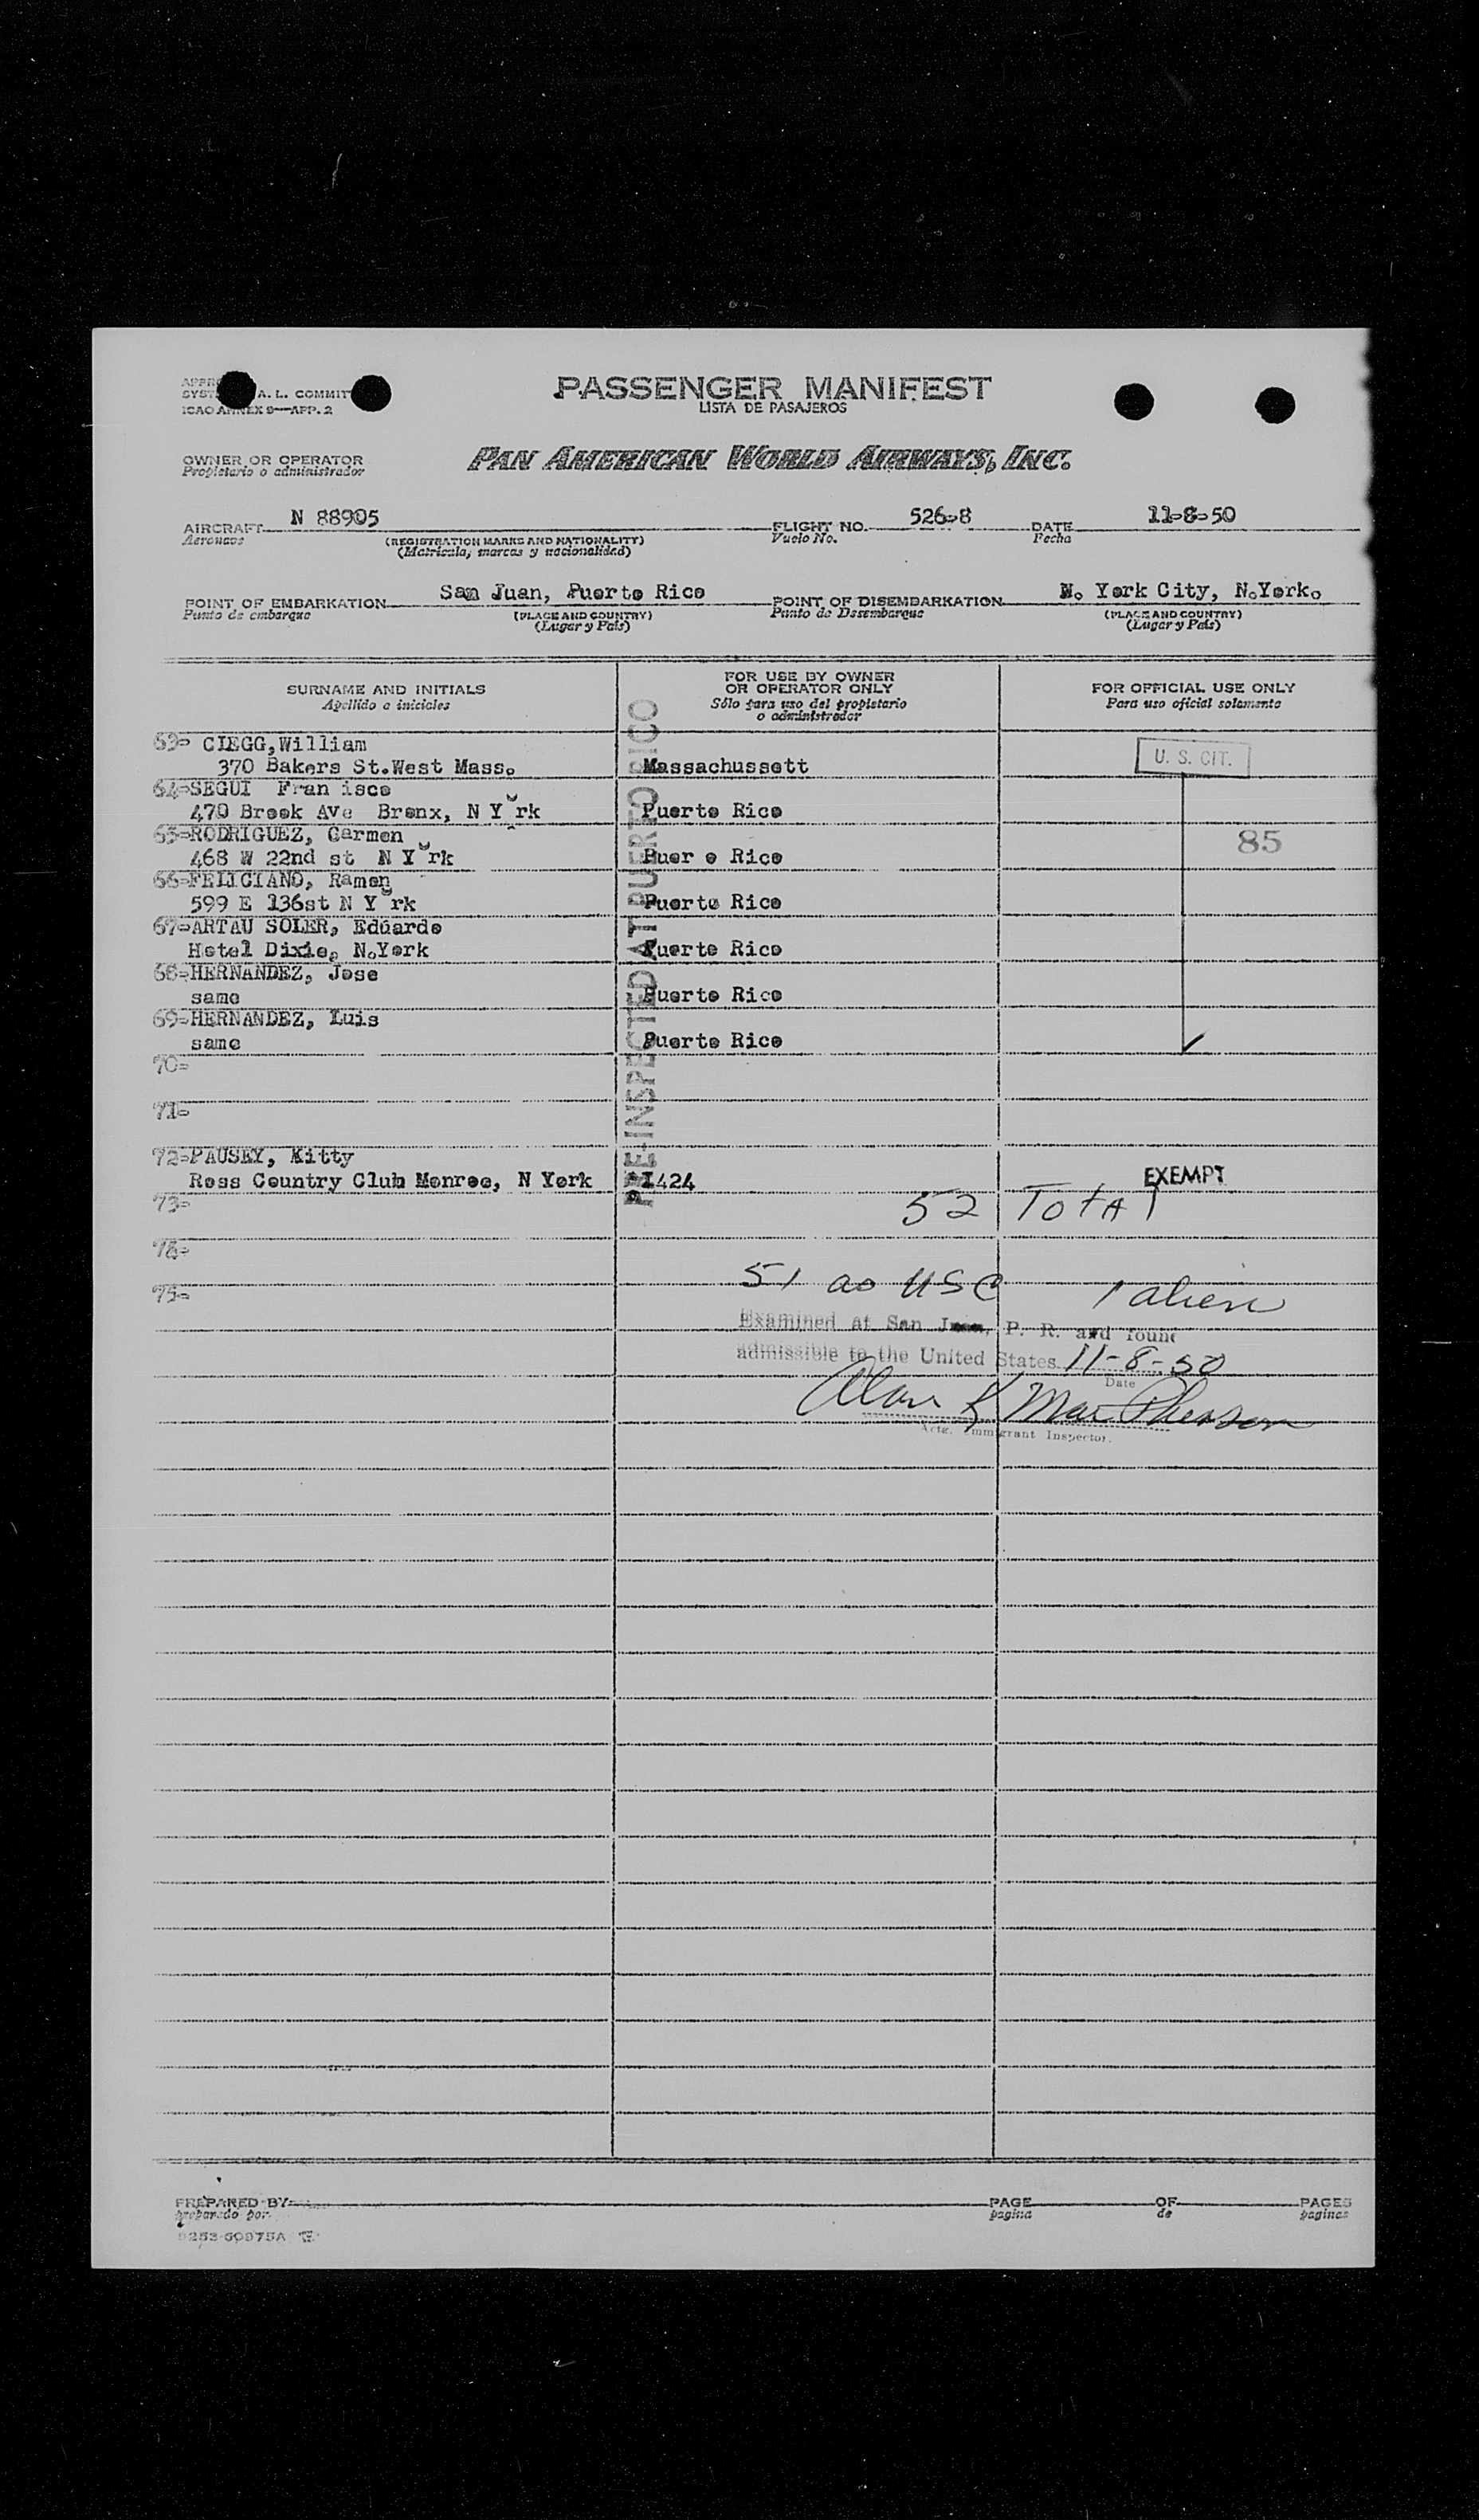 SYST A. L. COMMIT
ICAO ANNEX 9—APP. 2
PASSENGER MANIFEST
LISTA DE PASAJEROS
OWNER OR OPERATOR
Propietario o administrador
PAN AMERICAN WORLD AIRWAYS, INC.
AIRCRAFT N 88905 FLIGHT NO. 526-8 DATE 11-8-50
Aeronave (REGISTRATION MARKS AND NATIONALITY) Vuelo No. Fecha
(Matricula, marcas y nacionalidad)
POINT OF EMBARKATION San Juan, Puerto Rico POINT OF DISEMBARKATION N. York City, N.York.
Punto de embarque (PLACE AND COUNTRY) Punto de Desembarque (PLACE AND COUNTRY)
(Lugar y País) (Lugar y País)
SURNAME AND INITIALS
Apellido e iniciales
FOR USE BY OWNER
OR OPERATOR ONLY
Sólo para uso del propietario
o administrador
FOR OFFICIAL USE ONLY
Para uso oficial solamente
PRE-INSPECTED AT PUERTO RICO
63- CIEGG,William
370 Bakers St.West Mass. Massachussett U. S. CIT.
64-SEGUI Fran isco
470 Brook Ave Bronx, N Y rk Puerto Rico
65-RODRIGUEZ, Carmen 85
468 W 22nd st N Y rk Puer o Rico
66-FELICIANO, Ramon
599 E 136st N Y rk Puerto Rico
67-ARTAU SOLER, Eduardo
Hotel Dixie, N.York Puerto Rico
68-HERNANDEZ, Jose
same Puerto Rico
69-HERNANDEZ, Luis
same Puerto Rico
70-
71-
72-PAUSEY, Kitty
Ross Country Club Monroe, N York I424 EXEMPT
73- 52 Total
74-
75- 51 as USC 1 alien
Examined at San Juan, P. R. and found
admissible to the United States 11-8-50
Date
Alan K MacPherson
Actg. Immigrant Inspector.
PREPARED BY PAGE OF PAGES
preparado por pagina de paginas